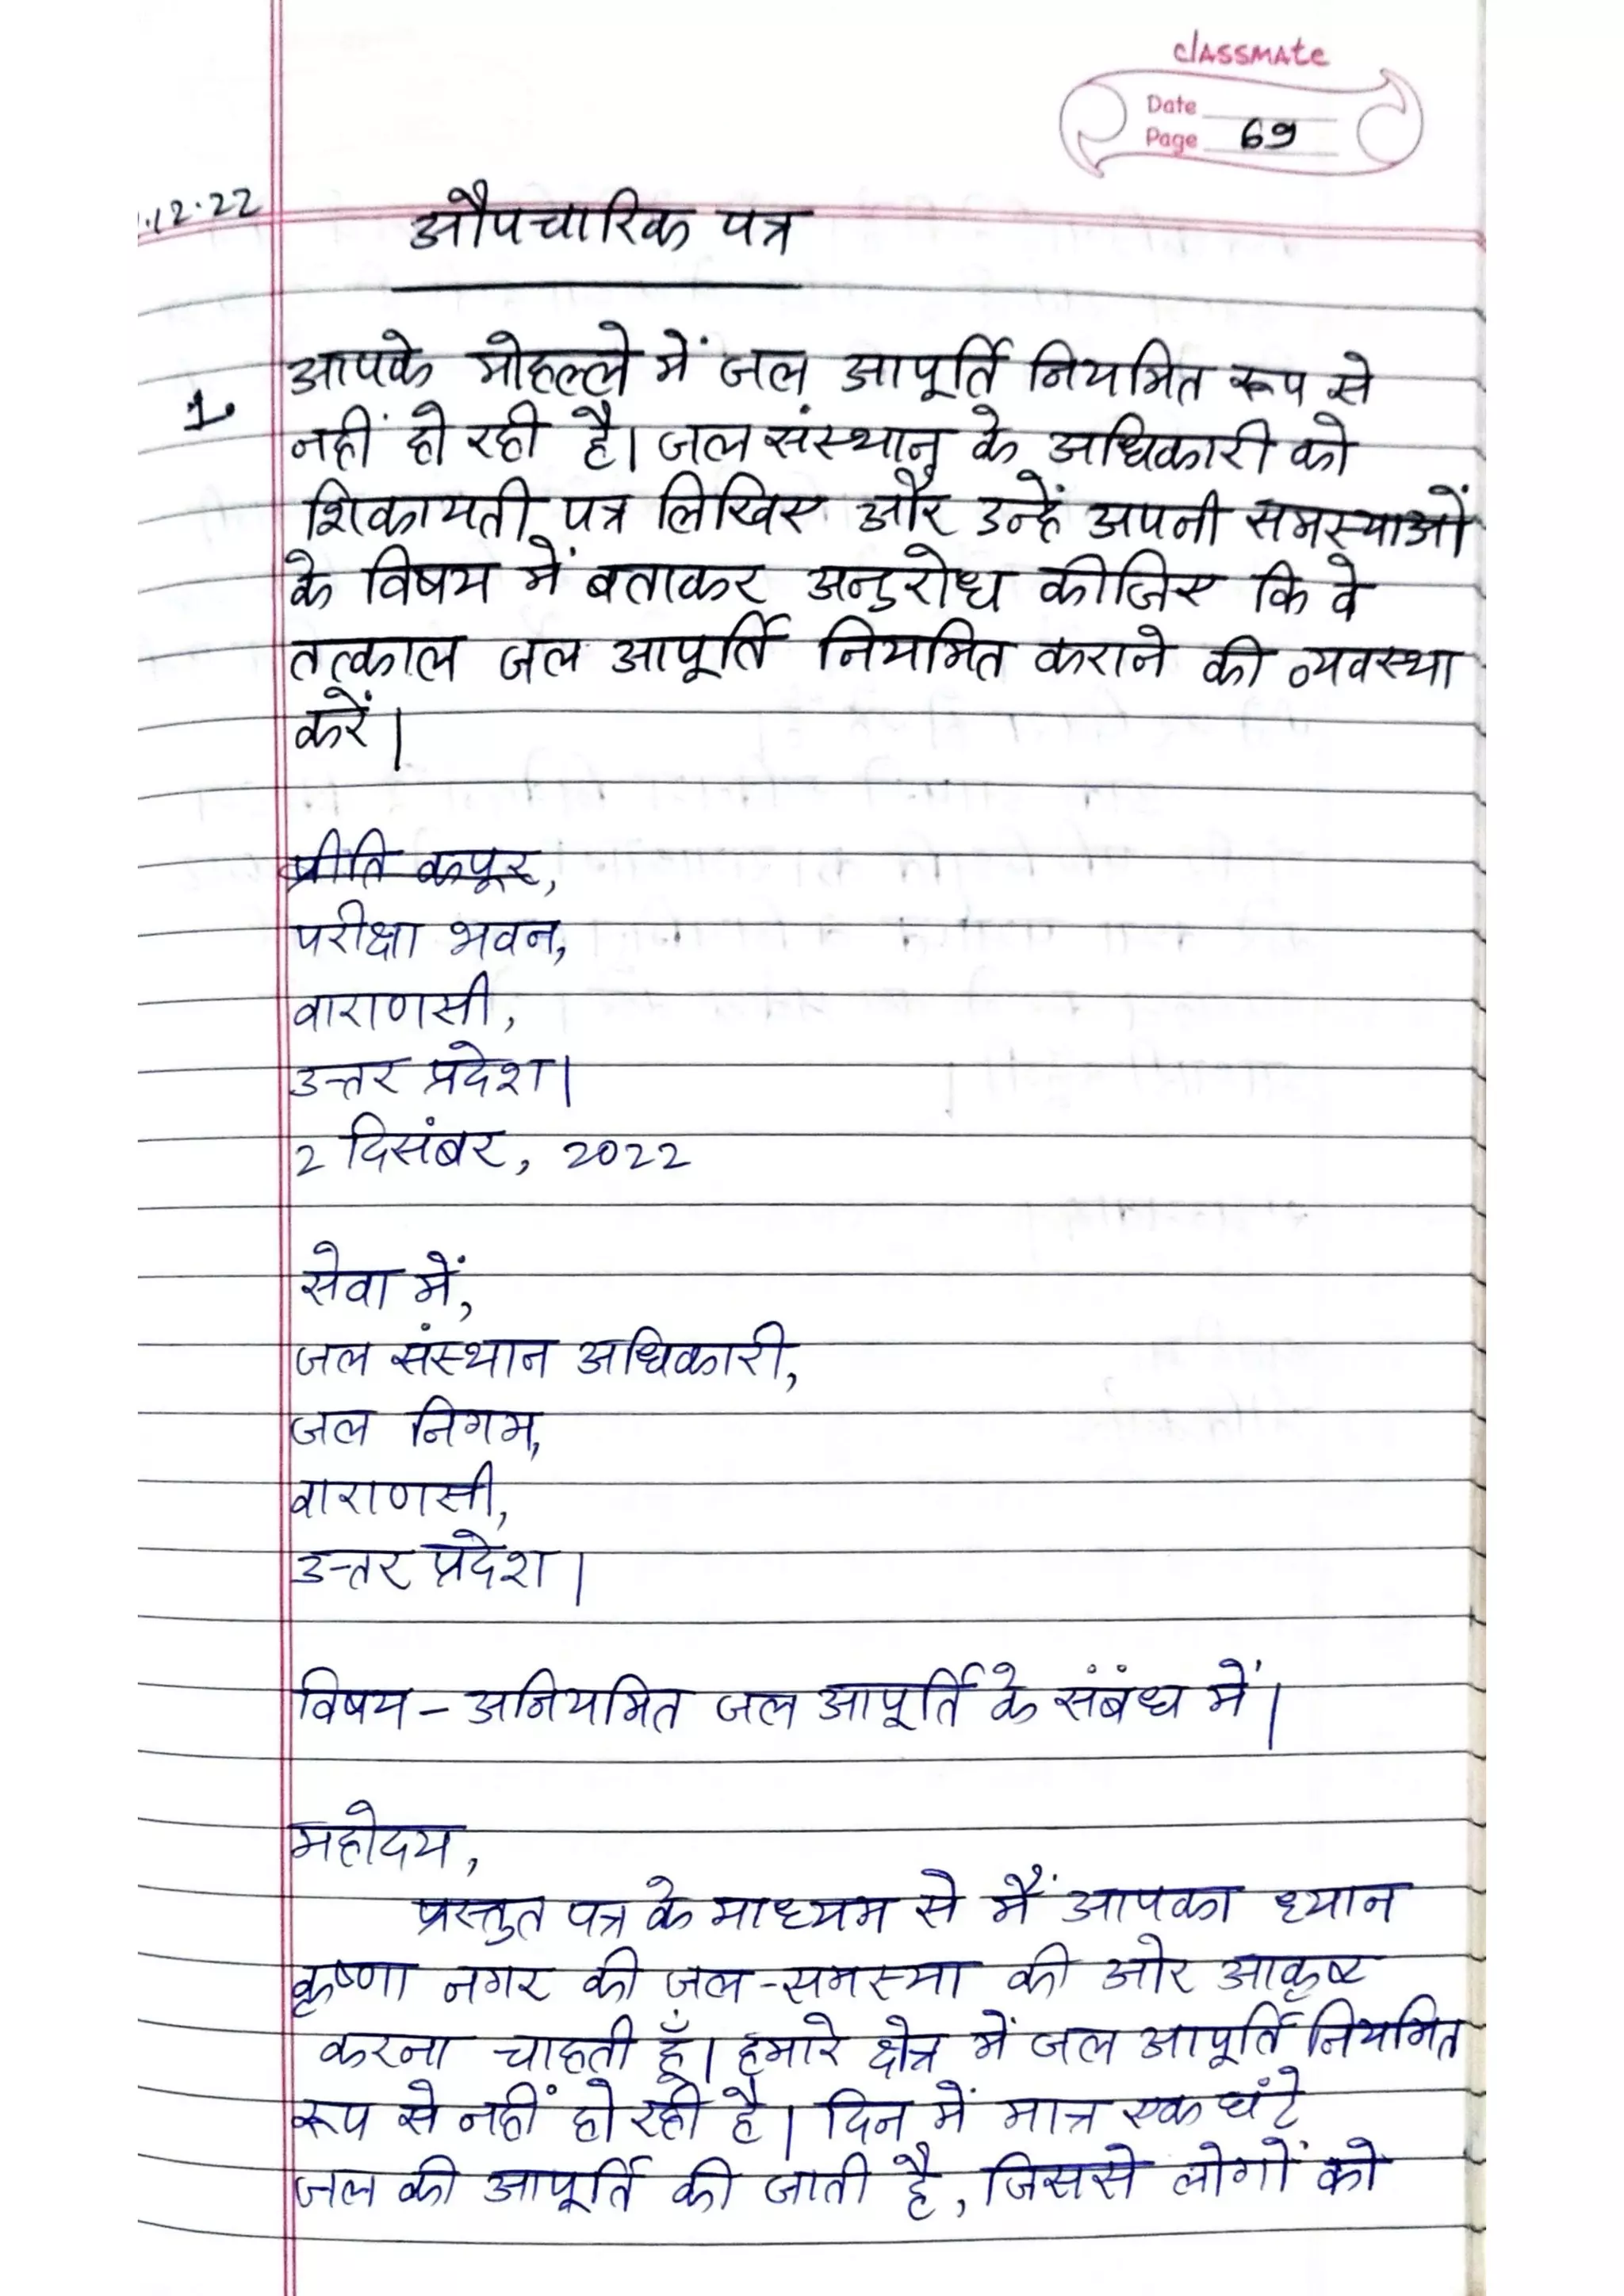 classmate
Date
Page 69
.12.22
औपचारिक पत्र
1. आपके मोहल्ले में जल आपूर्ति नियमित रूप से
नहीं हो रही है। जल संस्थान के अधिकारी को
शिकायती पत्र लिखिए और उन्हें अपनी समस्याओं
के विषय में बताकर अनुरोध कीजिए कि वे
तत्काल जल आपूर्ति नियमित कराने की व्यवस्था
करें।
प्रीति कपूर,
परीक्षा भवन,
वाराणसी,
उत्तर प्रदेश।
2 दिसंबर, 2022
सेवा में,
जल संस्थान अधिकारी,
जल निगम,
वाराणसी,
उत्तर प्रदेश।
विषय - अनियमित जल आपूर्ति के संबंध में।
महोदय,
प्रस्तुत पत्र के माध्यम से मैं आपका ध्यान
कृष्णा नगर की जल-समस्या की ओर आकृष्ट
करना चाहती हूँ। हमारे क्षेत्र में जल आपूर्ति नियमित
रूप से नहीं हो रही है। दिन में मात्र एक घंटे
जल की आपूर्ति की जाती है, जिससे लोगों को